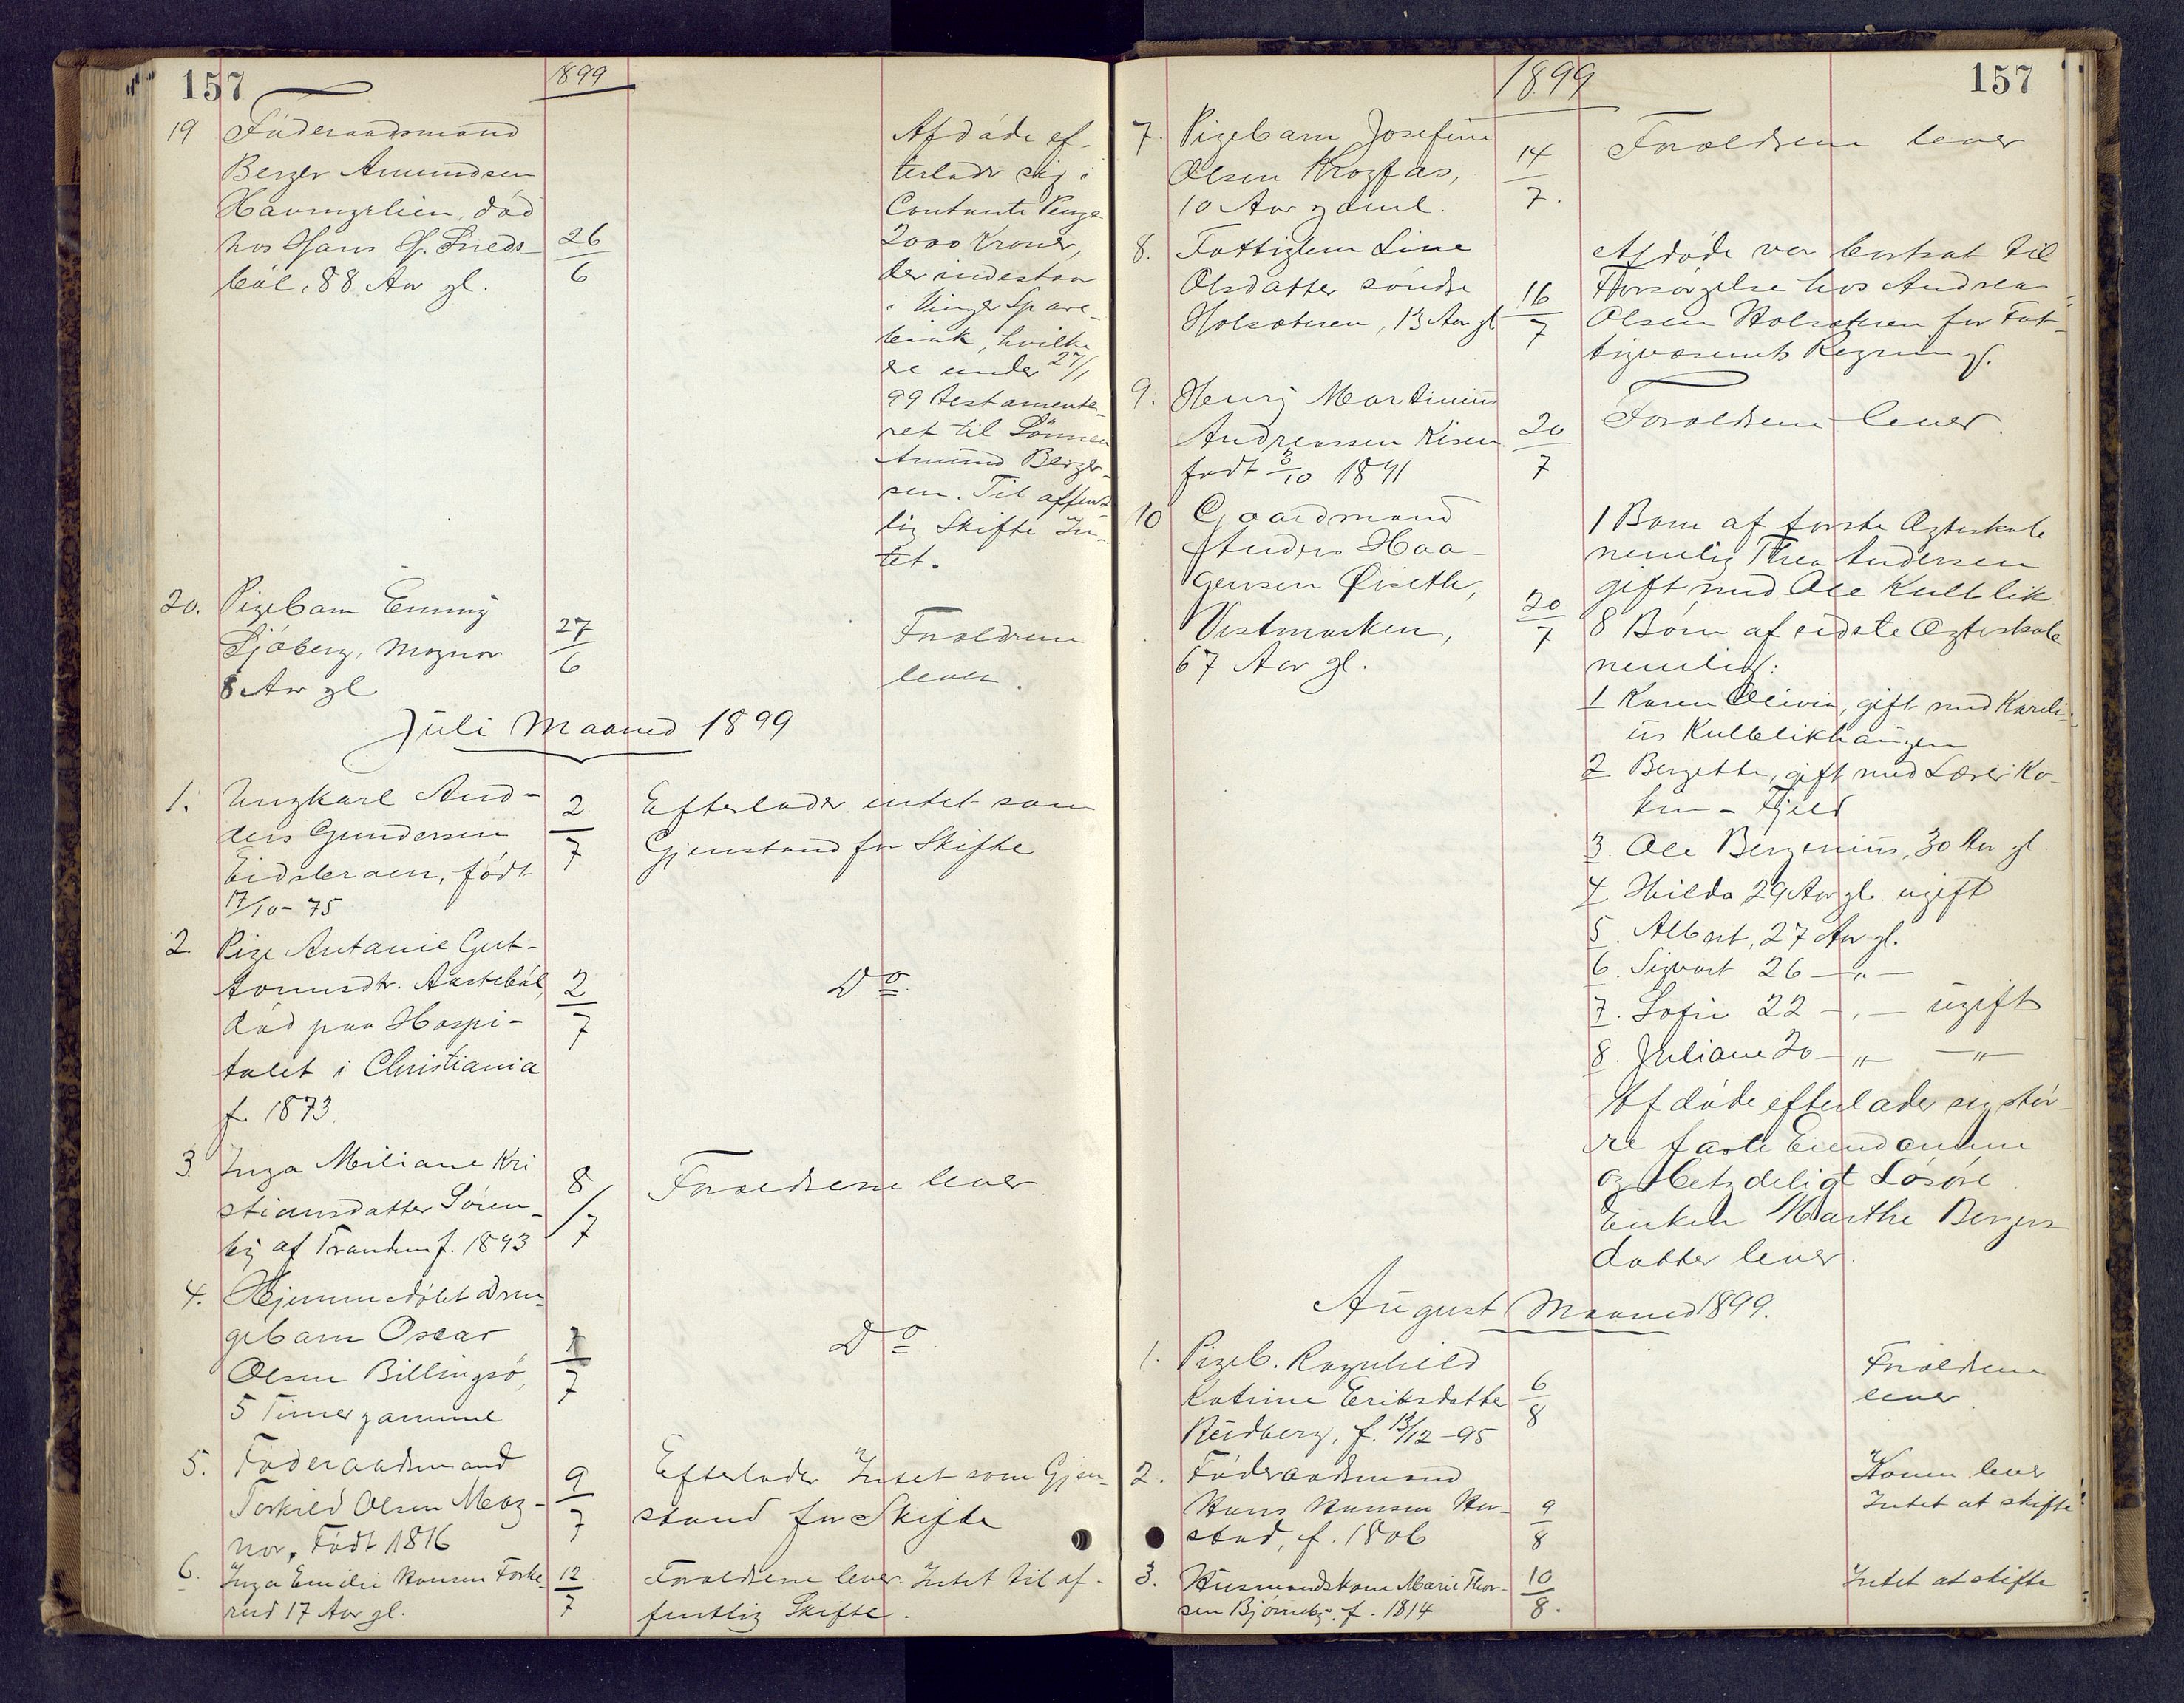 157
1899
19 Föderaadsmand
Berger Amundsen
Haavngrlien, död
hos Hans H. Sneds-
böl, 88 Aar gl.
26/6
Afdöde ef-
terlader sig i
Contante Penge
2000 Kroner,
der indestaar
i Vinger Spare-
bank, hvilke
er under 27/1
99 testamente-
ret til Sönnen
Amund Berger-
sen. Til offent-
lig Skifte In-
tet.
20. Pigebarn Emmy
Sjöberg, Magnor
8 Aar gl
27/6
Forældrene
lever.
Juli Maaned 1899
1. Ungkarl And-
ders Gundersen
Eidsbraaen, født
17/10-75
2/7
Efterlader intet som
Gjenstand for Skifte
2 Pige Antonie Gut-
tormsdtr. Aastebøl,
död paa Hospi-
talet i Christiania
f. 1873.
2/7
Do
3. Inga Miliane Kri
stiansdatter Sören-
by af Trandem f. 1893
8/7
Forældrene lever
4. Hjemmedøbt Dren-
gebarn Oscar
Olsen Billingsö,
5 Timer gammel
7
Do
5. Föderaadsmand
Torkild Olsen Mag-
nor. Födt 1816
9/7
Efterlader Intet som Gjen-
stand for Skifte
6. Inga Emilie Hansen Forbe-
rud 17 Aar gl.
12/7
Forældrene lever. Intet til of-
fentlig Skifte.
1899
157
7. Pigebarn Josefine
Olsen Krogfas,
10 Aar gaml.
14/7.
Forældrene lever
8. Fattiglem Line
Olsdatter söndre
Holsæteren, 13 Aar gl
16/7
Afdöde var bortsat til
Forsörgelse hos Andreas
Olsen Holsæteren for Fat-
tigvæsenets Regning.
9. Henry Martinius
Andreassen Risen
født 3/10 1891
20/7
Forældrene lever.
10 Gaardmand
Anders Haa-
gensen Øiseth,
Vestmarken,
67 Aar gl.
20/7
1 Barn af første Ægteskab
nemlig Thea Andersen
gift med Ole Kulblik
8 Börn af sidste Ægteskab
nemlig:
1 Karen Olivia, gift med Kareli-
us Kulblikhaugen
2 Bergette, gift med Lærer Ko-
ken - Fjeld
3. Ole Bergenius, 30 Aar gl
4 Hilda 29 Aar gl. ugift
5. Albert, 27 Aar gl.
6. Sigvart 26 —„—
7. Sofie 22 —„— ugift
8. Juliane 20 —„— —„—
Afdöde efterlader sig stör-
re faste Eiendomme
og betydeligt Lösöre
Enken Marthe Bergers
datter lever.
August Maaned 1899.
1. Pigeb. Ragnhild
Katrine Eriksdatter
Rudberg, f. 13/12-95
6/8
Forældrene
lever.
2. Föderaadsmand
Hans Hansen Har-
stad, f. 1806
9/8
Konen lever
Intet at skifte.
3. Husmandskone Marie Thor-
sen Bjørneby. f. 1814
10/8.
Intet at skifte